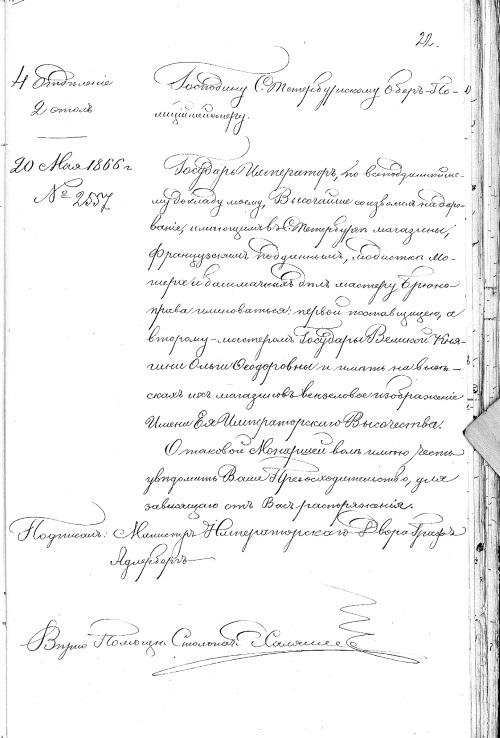 22.
4 Отдѣленіе
2 столъ
20 Мая 1866 г
№ 2557
Господину С. Петербургскому Оберъ-По-
лиціймейстеру.
Государь Императоръ, по всеподданнѣйше-
му докладу моему, Высочайше соизволилъ на даро-
ваніе, имѣющимъ въ С. Петербургѣ магазины,
французскимъ подданнымъ, модисткѣ Мо-
гера и башмачныхъ дѣлъ мастеру Брюно
права именоваться: первой поставщицею, а
второму-мастеромъ Государыни Великой Кня-
гини Ольги Ѳеодоровны и имѣть на вывѣ-
скахъ ихъ магазиновъ вензеловое изображеніе
Имени Ея Императорскаго Высочества.
О таковой Монаршей волѣ имѣю честь
увѣдомить Ваше Превосходительство, для
зависящаго отъ Васъ распоряженія.
Подписалъ: Министръ Императорскаго Двора Графъ
Адлербергъ
Вѣрно Помощн. Столонач.